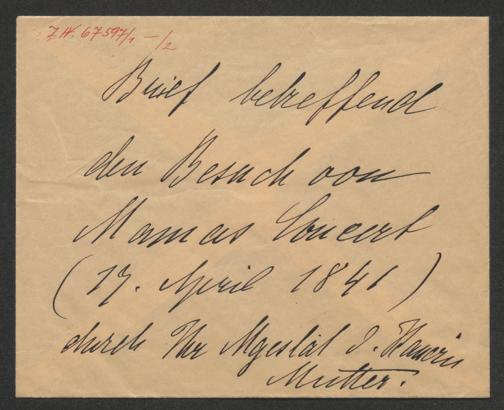 I.N. 67597/1 – /2
Brief betreffend
den Besuch von
Mamas Concert
(17. April 1841)
durch Ihr Majestät d. Kaiserin
Mutter.